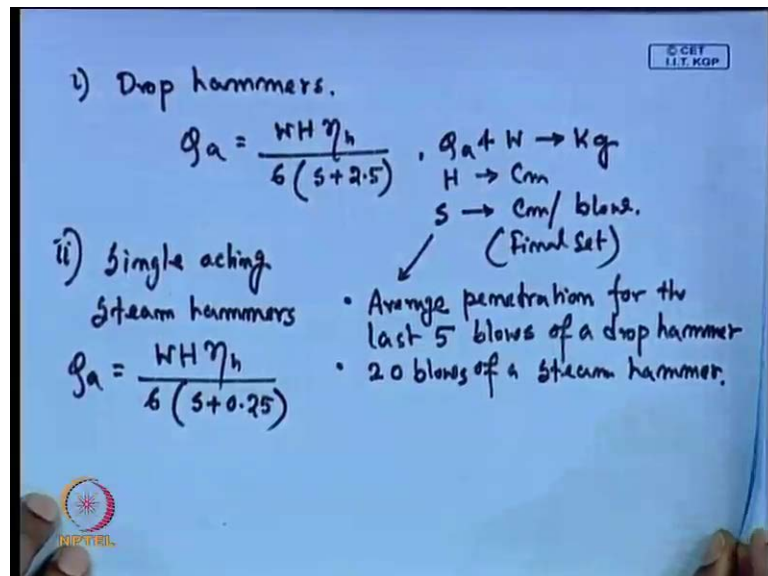 © CET
I.I.T. KGP
i) Drop hammers.
Qa = WHηh / 6(S+2.5) , Qa + W → Kg
H → Cm
S → Cm/ blow.
(Final Set)
ii) Single acting
steam hammers
Qa = WHηh / 6(S+0.25)
• Average penetration for the
last 5 blows of a drop hammer
• 20 blows of a steam hammer.
NPTEL